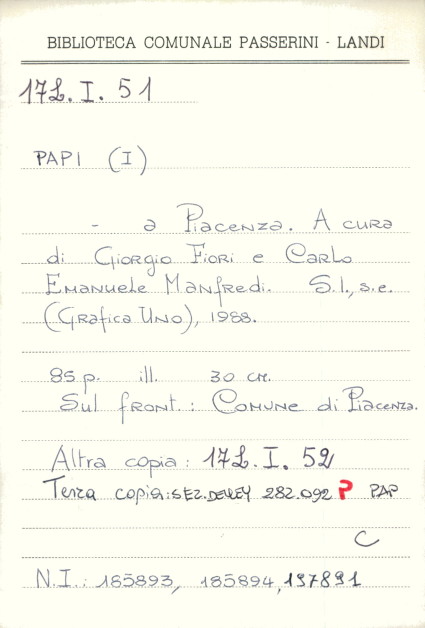 BIBLIOTECA COMUNALE PASSERINI - LANDI
17L. I. 51
PAPI (I)
- a Piacenza. A cura
di Giorgio Fiori e Carlo
Emanuele Manfredi. S.l., s.e.
(Grafica Uno), 1988.
85 p. ill. 30 cm.
Sul front.: Comune di Piacenza.
Altra copia: 17L. I. 52
Terza copia: SEZ. DEWEY 282.092 P PAP
C
N.I.: 185893, 185894, 197891